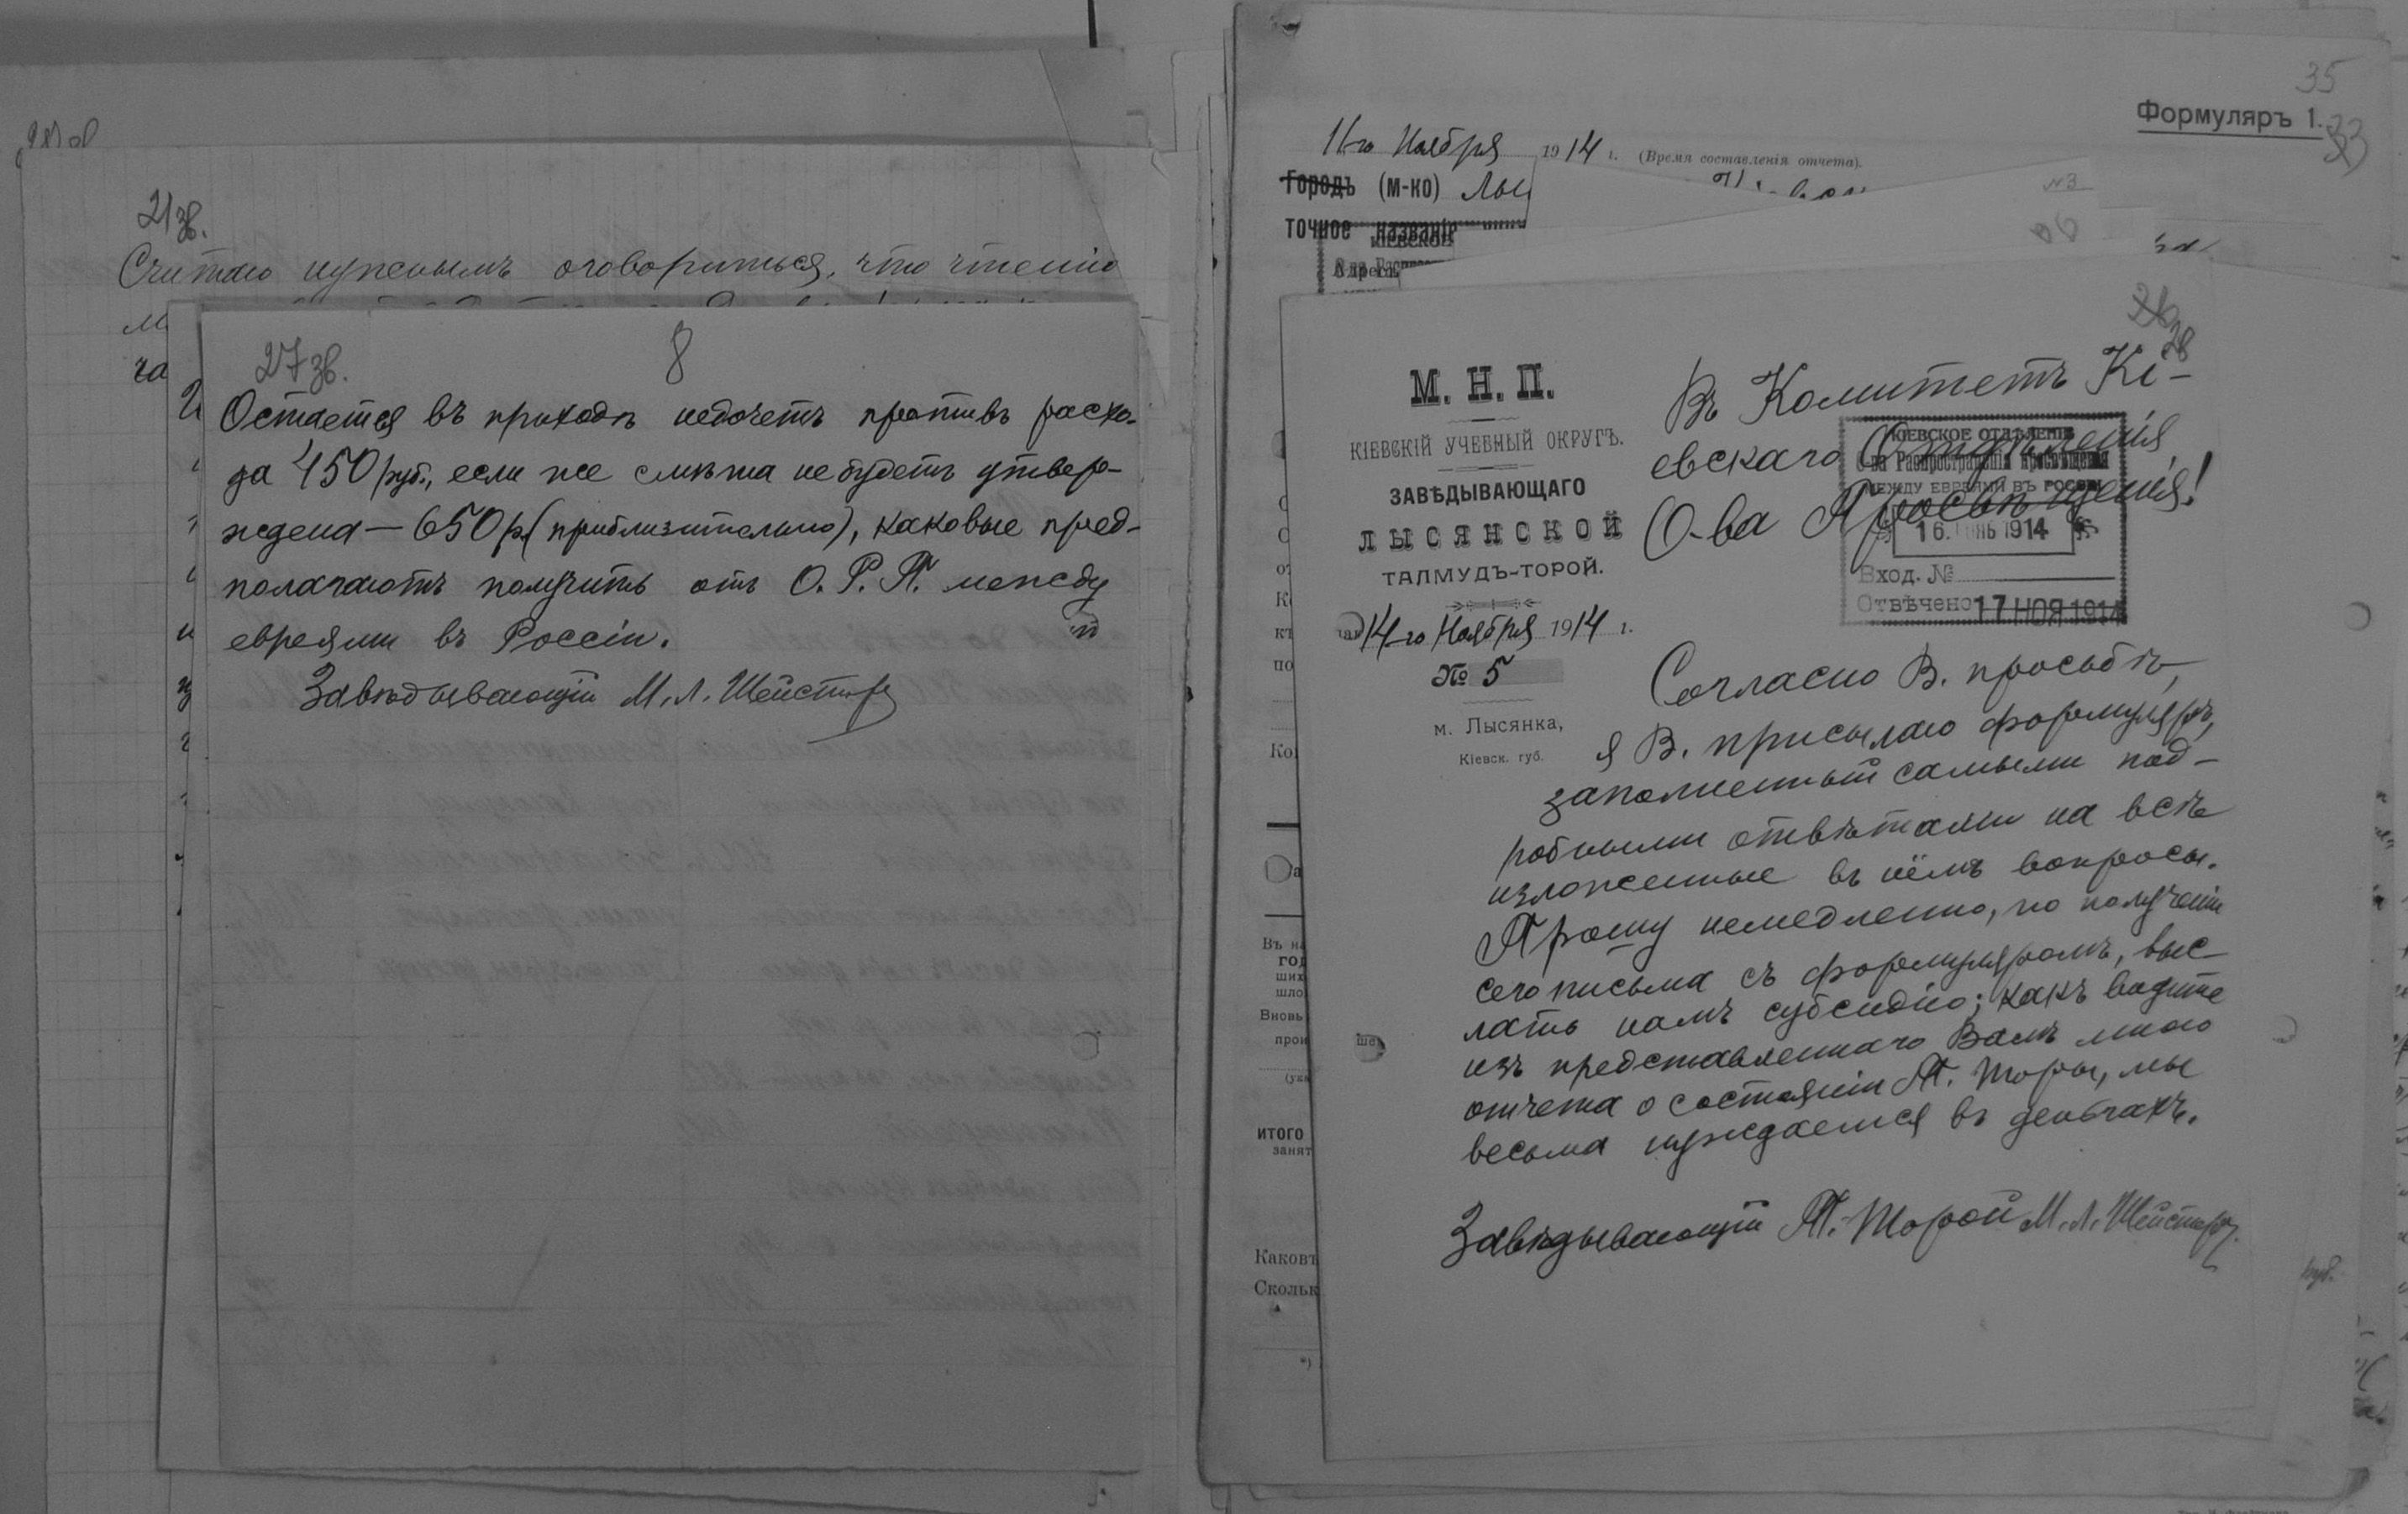 21 зв.
Считаю нужнымъ оговориться, что чтенію
27 зв.
8
Остается въ приходѣ недочетъ противъ расхо-
да 450 руб., если же смѣта не будетъ утвер-
ждена — 650 р. (приблизительно), каковые пред-
полагаютъ получить отъ О. Р. П. между
евреями въ Россіи.
Завѣдывающій М. Л. Шейстеръ
35
Формуляръ 1.
33
11-го Ноября 1914 г. (Время составленія отчета).
Городъ (м-ко) Лы
точное названіе
КІЕВСКОЕ
Адресъ
№3
М. Н. П.
КІЕВСКІЙ УЧЕБНЫЙ ОКРУГЪ.
ЗАВѢДЫВАЮЩАГО
ЛЫСЯНСКОЙ
ТАЛМУДЪ-ТОРОЙ.
14-го Ноября 1914 г.
№ 5
м. Лысянка,
Кіевск. губ.
Въ Комитетъ Кі-
евскаго Отдѣленія
О-ва Просвѣщенія!
КІЕВСКОЕ ОТДѢЛЕНІЕ
О-ва Распространенія просвѣщенія
МЕЖДУ ЕВРЕЯМИ ВЪ РОССІИ
16. НОЯБ 1914
Вход. №
Отвѣчено 17 НОЯ 1914
Согласно В. просьбѣ,
я В. присылаю формуляръ,
заполненный самыми под-
робными отвѣтами на всѣ
изложенные въ нёмъ вопросы.
Прошу немедленно, по полученіи
сего письма съ формуляромъ, выс-
лать намъ субсидію; какъ видите
изъ представленнаго Вамъ мною
отчета о состояніи Т. Торы, мы
весьма нуждаемся въ деньгахъ.
Завѣдывающій Т.-Торой М. Л. Шейстеръ
Въ на
год
ших
шло
Вновь
прои
ИТОГО
занят
Каковъ
Скольк
руб.